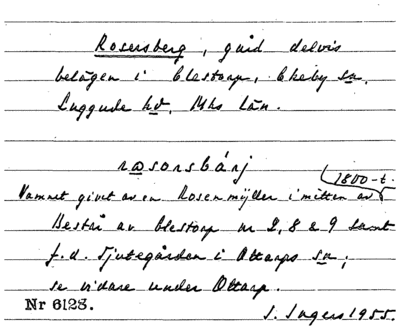 Rosersberg, gård delvis
belägen i Elestorp, Ekeby sn,
Luggude hd, Mhs län.
rosorsbárj
1800-t.
Namnet givet av en Rosenmüller i mitten av
Består av Elestorp nr 2, 8 & 9 samt
f.d. Tjutegården i Ottarps sn;
se vidare under Ottarp.
Nr 6128.
I. Ingers 1955.